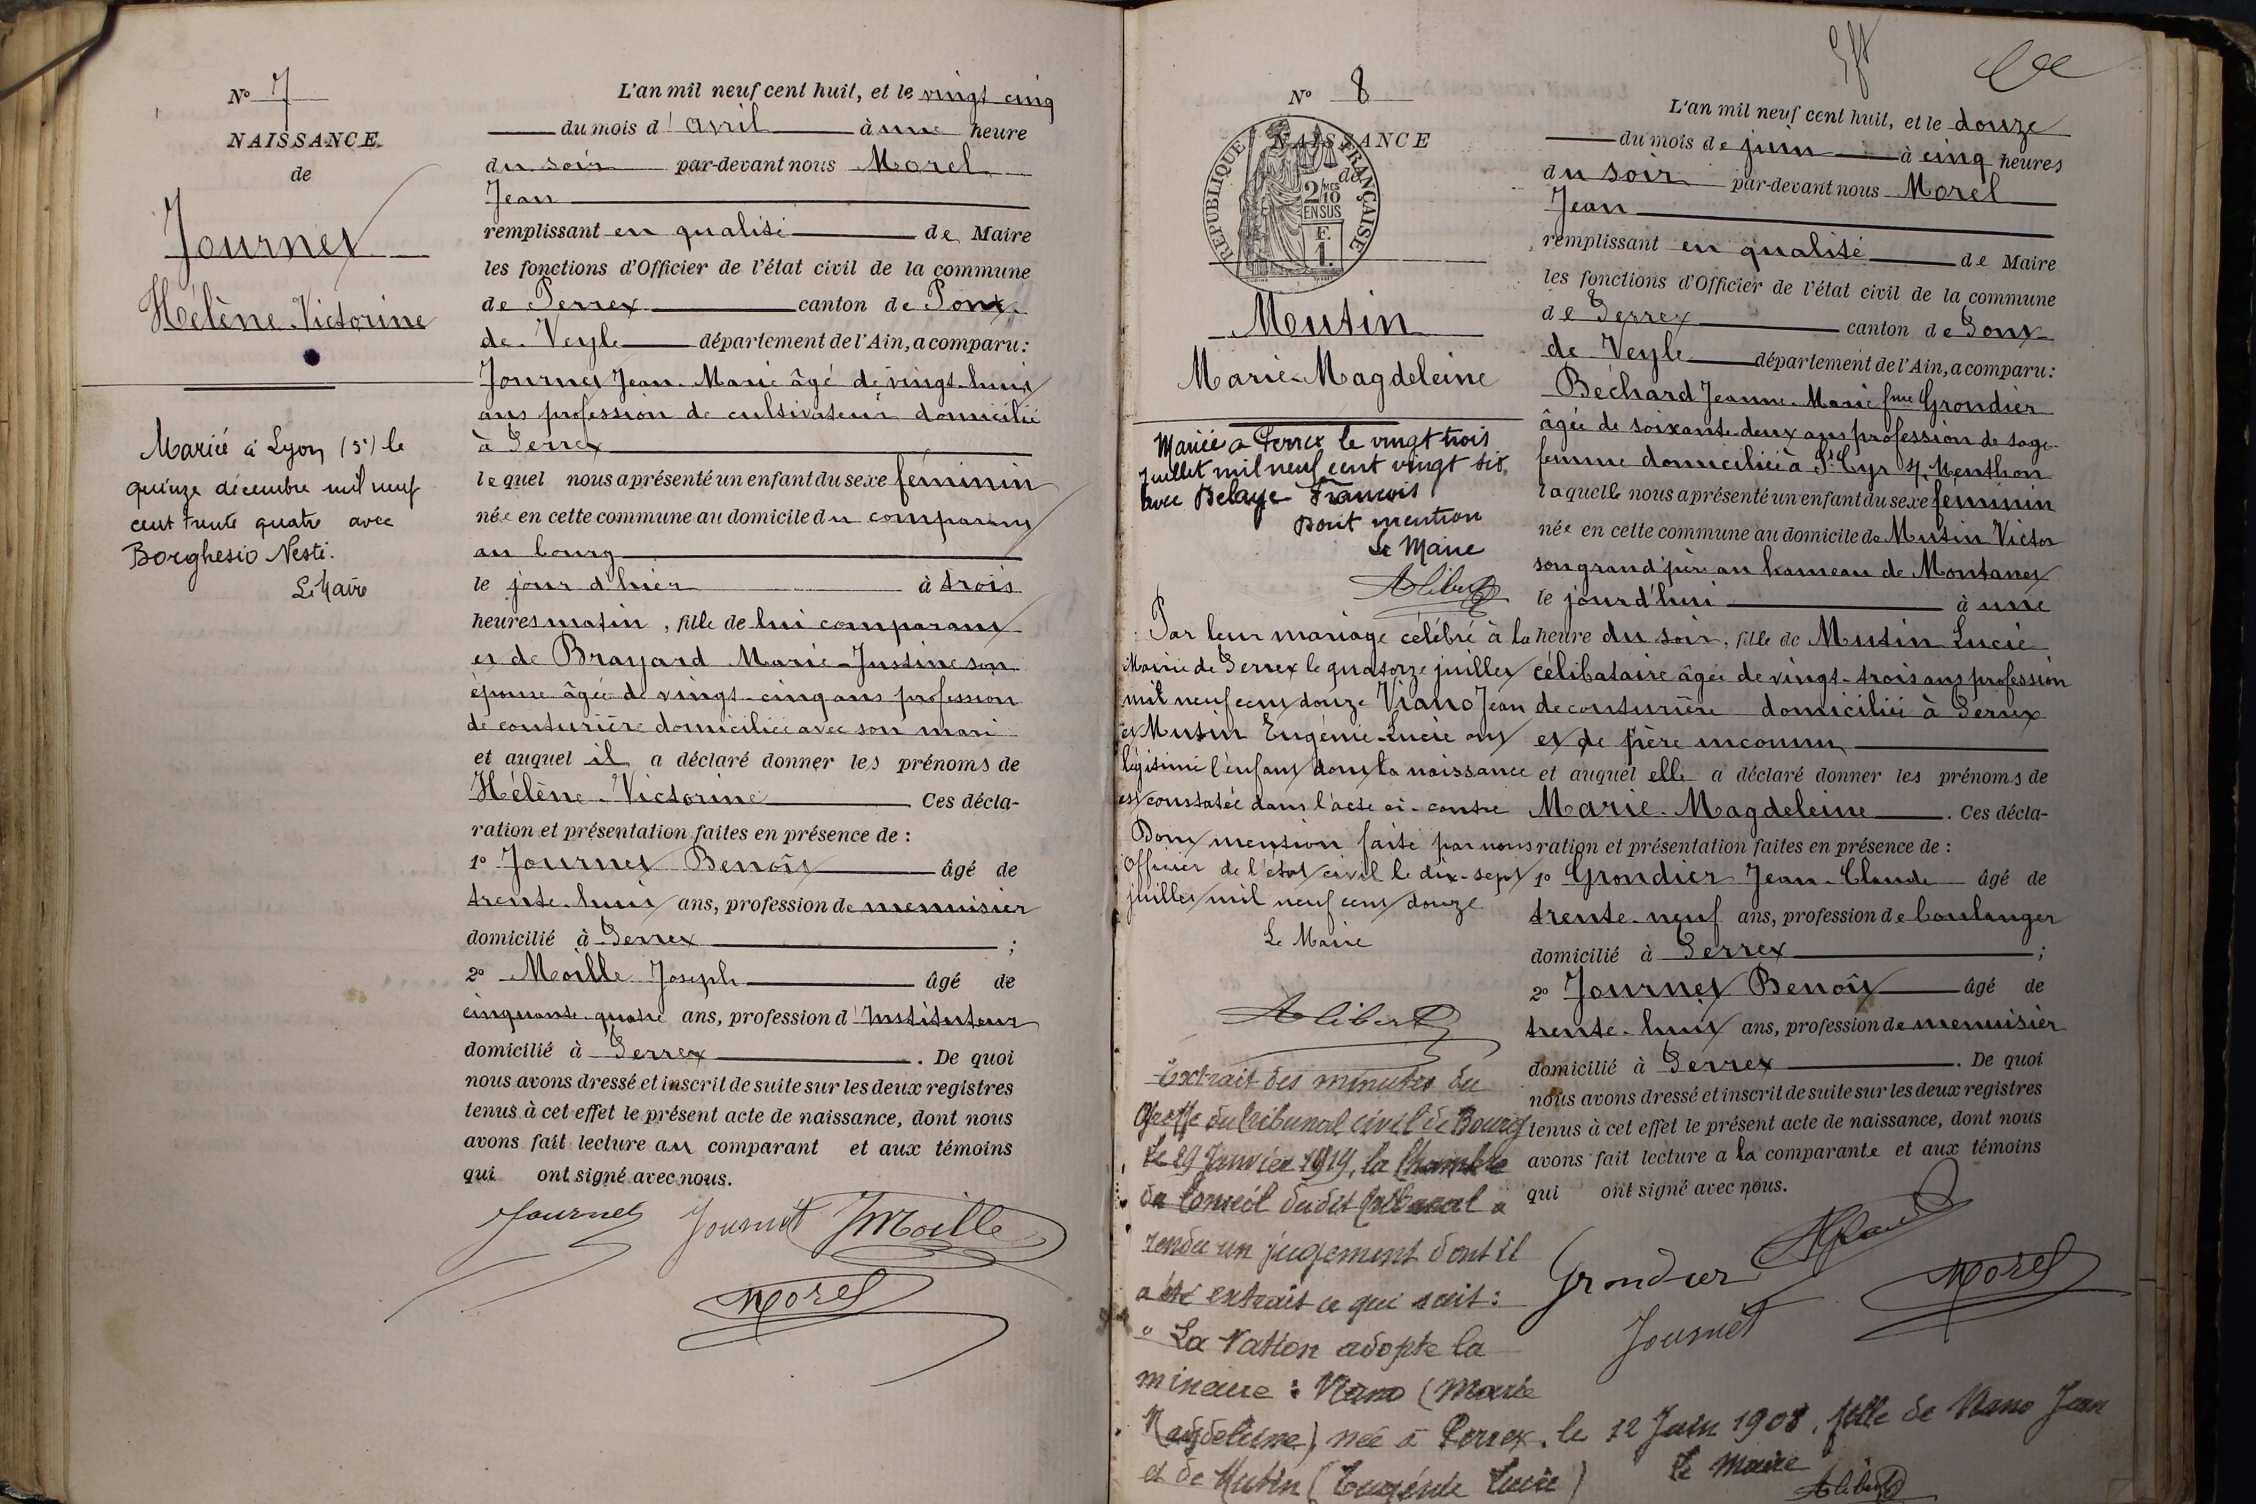 N° 7
NAISSANCE
de
Journet
Hélène Victorine
Mariée à Lyon (5e) le
quinze décembre mil neuf
cent trente quatre avec
Borghesio Nesti.
Le Maire
L'an mil neuf cent huit, et le vingt cinq
du mois d'avril à une heure
du soir par-devant nous Morel
Jean
remplissant en qualité de Maire
les fonctions d'Officier de l'état civil de la commune
de Perrex canton de Pont
de Veyle département de l'Ain, a comparu :
Journet Jean-Marie âgé de vingt-huit
ans profession de cultivateur domicilié
à Perrex
lequel nous a présenté un enfant du sexe féminin
née en cette commune au domicile du comparant
au bourg
le jour d'hier à trois
heures matin, fille de lui comparant
et de Brayard Marie-Justine son
épouse âgée de vingt-cinq ans profession
de couturière domiciliée avec son mari
et auquel il a déclaré donner les prénoms de
Hélène-Victorine Ces décla-
ration et présentation faites en présence de :
1° Journet Benoît âgé de
trente-huit ans, profession de menuisier
domicilié à Perrex ;
2° Moille Joseph âgé de
cinquante-quatre ans, profession d'Instituteur
domicilié à Perrex . De quoi
nous avons dressé et inscrit de suite sur les deux registres
tenus à cet effet le présent acte de naissance, dont nous
avons fait lecture au comparant et aux témoins
qui ont signé avec nous.
Journet Journet JMoille
Morel
N° 8
NAISSANCE
de
RÉPUBLIQUE FRANÇAISE
2/10 MES
EN SUS
F.
1.
Mutin
Marie-Magdeleine
Mariée à Perrex le vingt trois
juillet mil neuf cent vingt six,
avec Delaye François
Dont mention
Le Maire
Alibert
Par leur mariage célébré à la
Mairie de Perrex le quatorze juillet
mil neuf cent douze Viano Jean
et Mutin Eugénie-Lucie ont
légitimé l'enfant dont la naissance
est constatée dans l'acte ci-contre
Dont mention faite par nous
Officier de l'état civil le dix-sept
juillet mil neuf cent douze
Le Maire
Alibert
Extrait des minutes du
Greffe du tribunal civil de Bourg
Le 29 Janvier 1919, la Chambre
du Conseil dudit tribunal a
rendu un jugement dont il
a été extrait ce qui suit :
" La Nation adopte la
mineure : Viano (Marie
Magdeleine) née à Perrex, le 12 Juin 1908, fille de Viano Jean
et de Mutin (Eugénie Lucie)
Le Maire
Alibert
L'an mil neuf cent huit, et le douze
du mois de juin à cinq heures
du soir par-devant nous Morel
Jean
remplissant en qualité de Maire
les fonctions d'Officier de l'état civil de la commune
de Perrex canton de Pont
de Veyle département de l'Ain, a comparu :
Béchard Jeanne-Marie fme Grondier
âgée de soixante-deux ans profession de sage-
femme domiciliée à St Cyr s/ Menthon
laquelle nous a présenté un enfant du sexe féminin
née en cette commune au domicile de Mutin Victor
son grand'père au hameau de Montanet
le jourd'hui à une
heure du soir, fille de Mutin Lucie
célibataire âgée de vingt-trois ans profession
de couturière domiciliée à Perrex
et de père inconnu
et auquel elle a déclaré donner les prénoms de
Marie-Magdeleine . Ces décla-
ration et présentation faites en présence de :
1° Grondier Jean-Claude âgé de
trente-neuf ans, profession de boulanger
domicilié à Perrex ;
2° Journet Benoît âgé de
trente-huit ans, profession de menuisier
domicilié à Perrex . De quoi
nous avons dressé et inscrit de suite sur les deux registres
tenus à cet effet le présent acte de naissance, dont nous
avons fait lecture a la comparante et aux témoins
qui ont signé avec nous.
Grondier
Morel
Journet